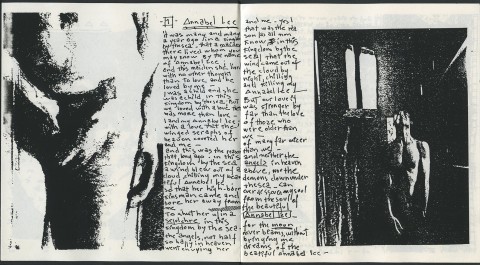 [M] - Annabel Lee
it was many and many
a year ago in a
by the sea, that a maiden
there lived whom you
may know by the name
of Annabel Lee
and this maiden she lived
with no other thought
than to love, and be
loved by me
I was a child and she
was a child in this
kingdom by the sea, but
we loved with a love that
was more than love -
I and my annabel Lee -
with a love that the
winged seraphs of
heaven coveted her
and me -
and this was the reason
that, long ago, in this
kingdom by the sea
a wind blew out of a
cloud chilling my
Annabel Lee -
so that her high-born
kinsman came and
bore her away from
me
To shut her up in a
sepulchre, in this
kingdom by the sea
the angels, not half
so happy in heaven
went envying her
and me - yes!
that was the rea
son (as all men
know in this
kingdom by the
sea) that the
wind came out of
the cloud by
night, chilling
and killing my
Annabel Lee -
But our love it
was stronger by
far than the love
of those who
were older than
we -
of many far wiser
than we
and neither the
angels in heaven
above, nor the
demons down under
the sea - can
ever dissever my soul
from the soul of
the beautiful
Annabel Lee -
for the moon
never beams, without
bringing me
dreams, of the
beautiful annabel Lee -